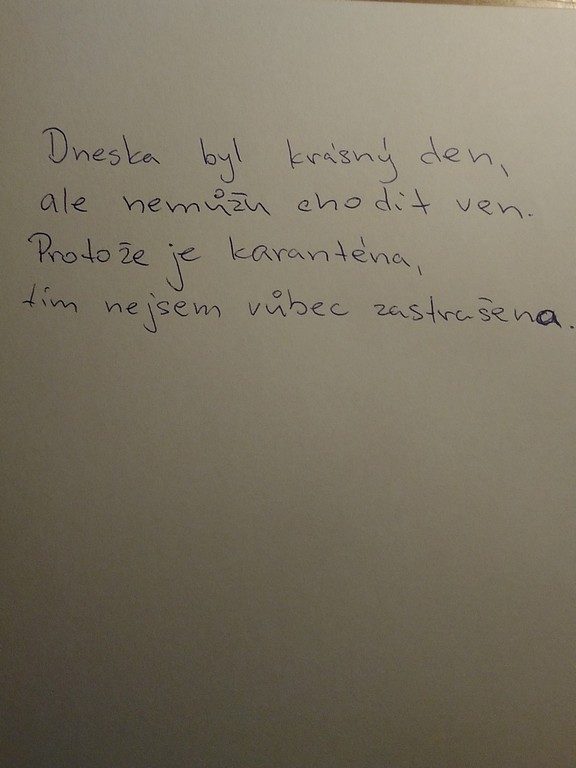 Dneska byl krásný den,
ale nemůžu chodit ven.
Protože je karanténa,
tím nejsem vůbec zastrašena.